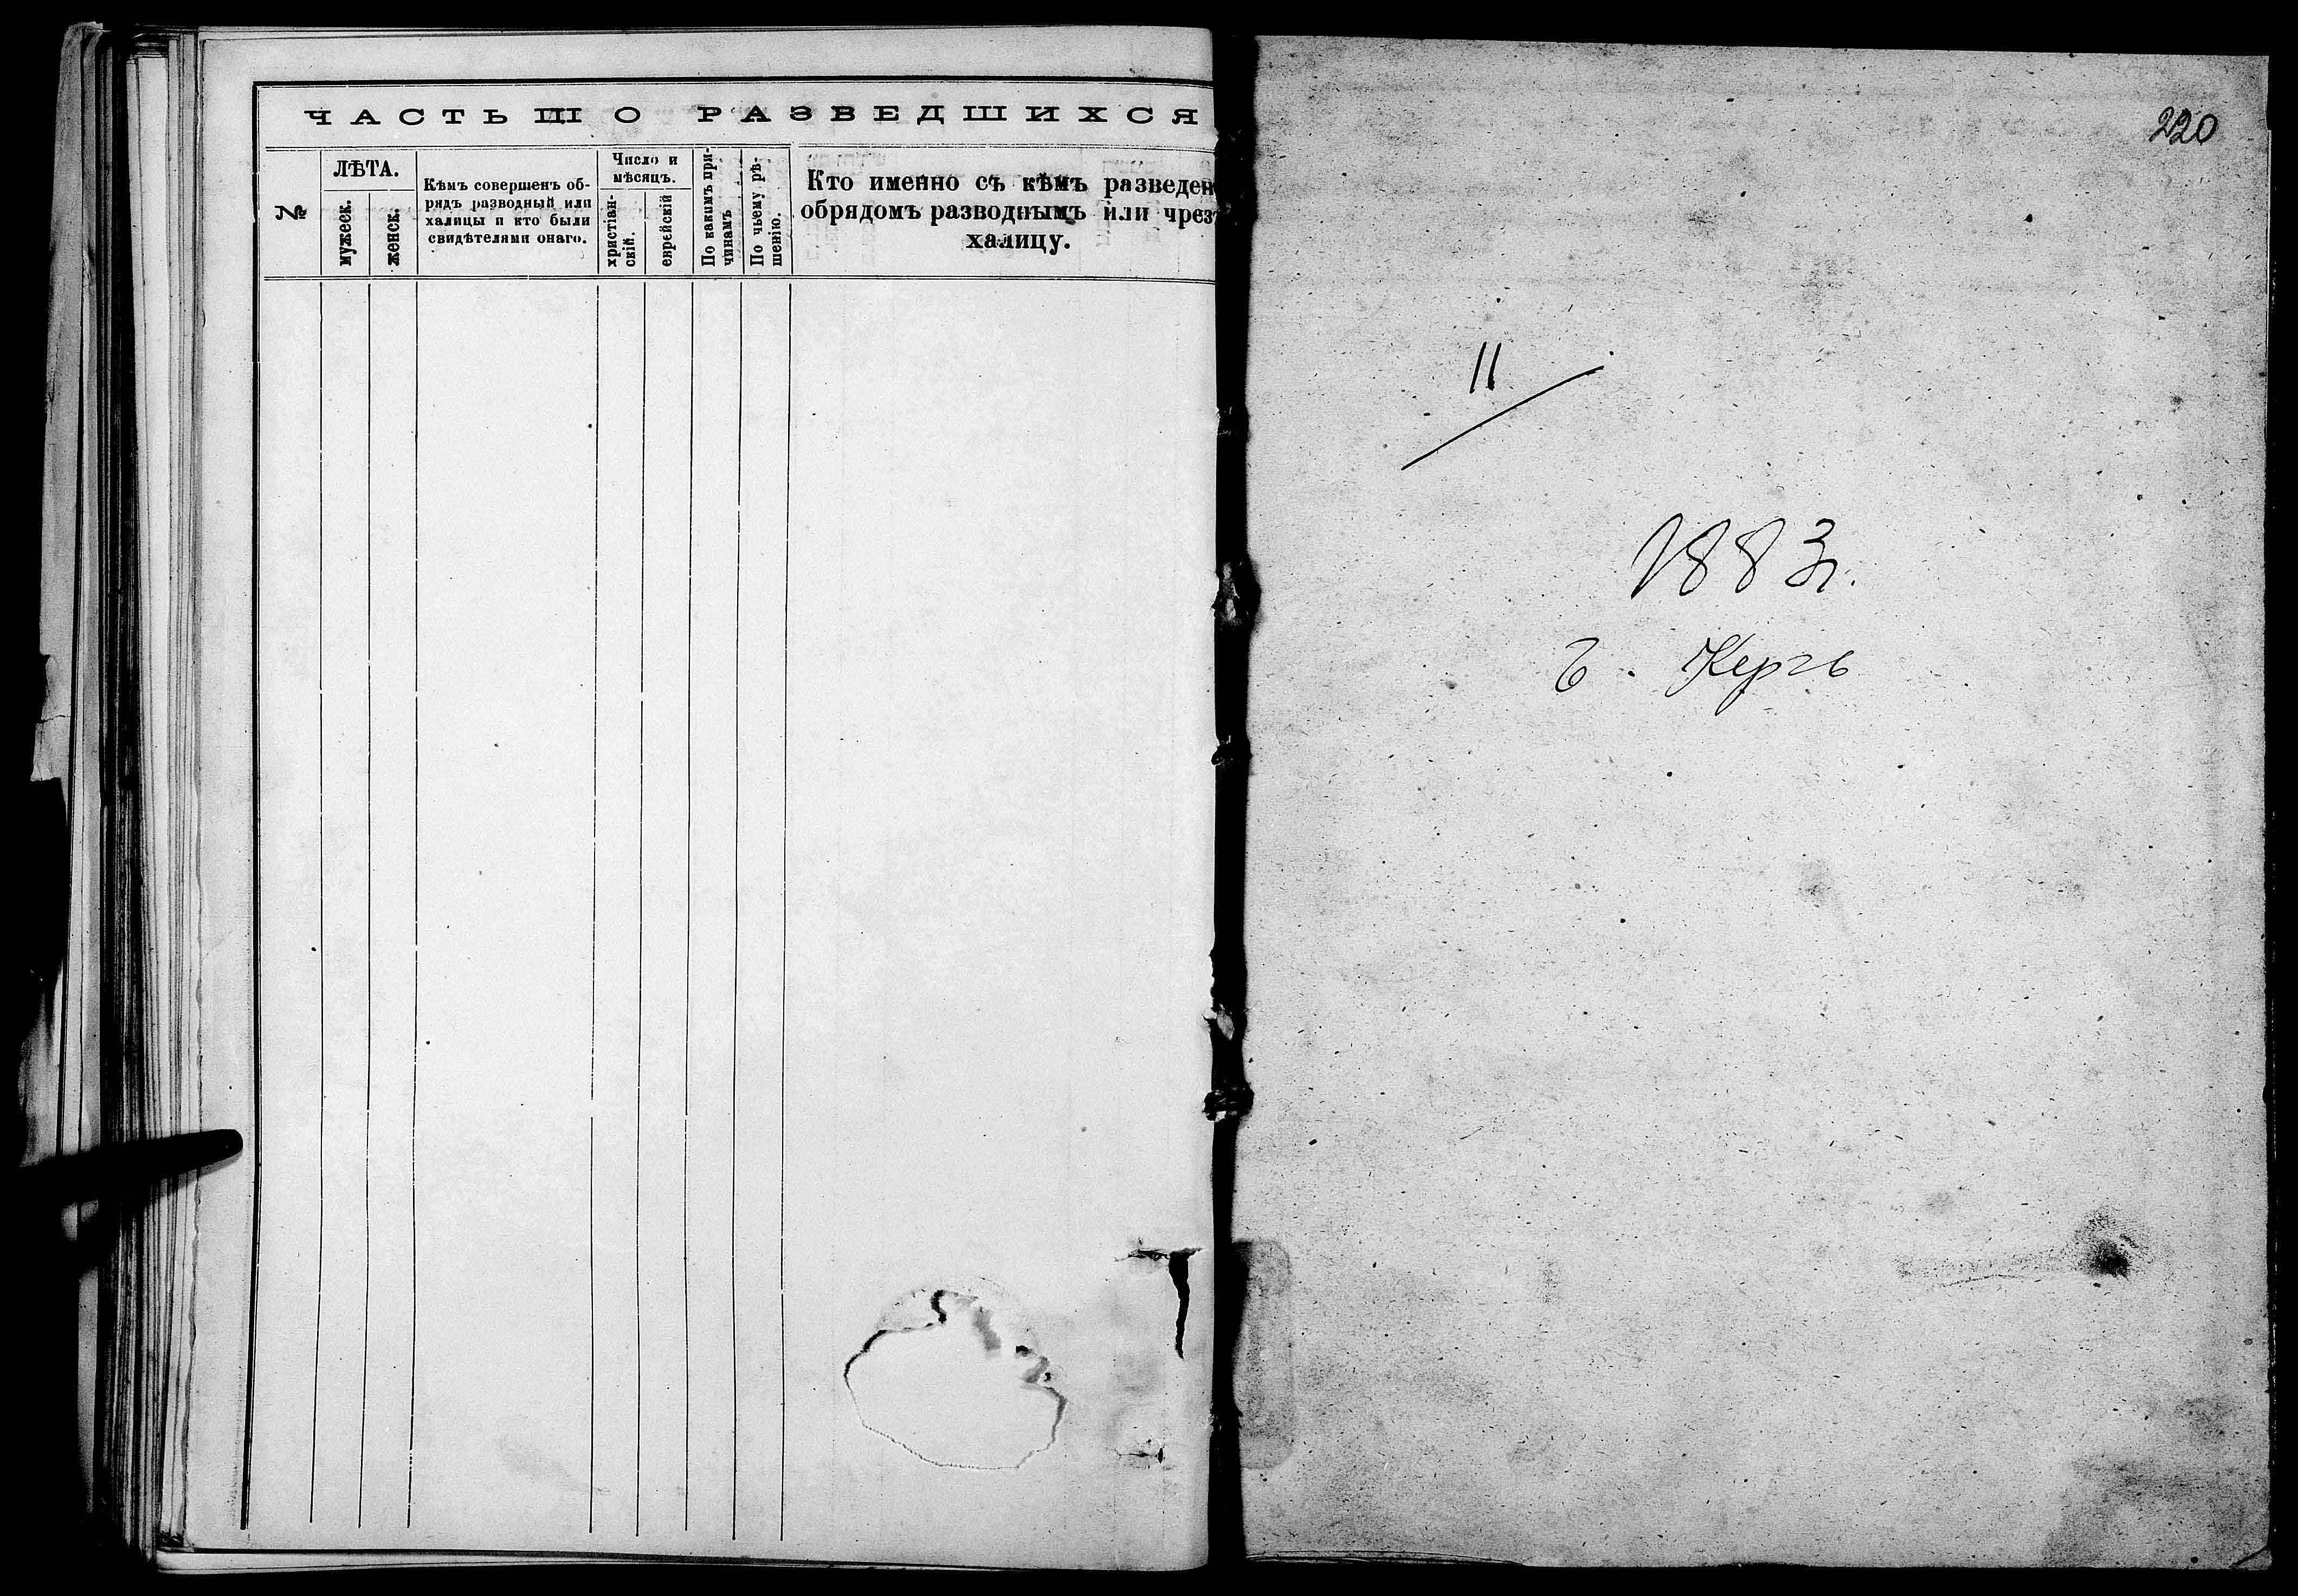 ЧАСТЬ III О РАЗВЕДШИХСЯ
№
ЛѢТА.
мужеск.
женск.
Кѣмъ совершенъ об-
рядъ разводный или
халицы и кто были
свидѣтелями онаго.
Число и
мѣсяцъ.
христіан-
скій.
еврейскій
По какимъ при-
чинамъ
По чьему рѣ-
шенію.
Кто именно съ кѣмъ разведен
обрядомъ разводнымъ или чрез
халицу.
220
11
1883 г.